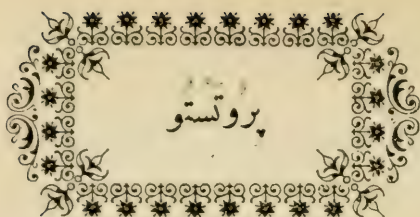 پروتستو